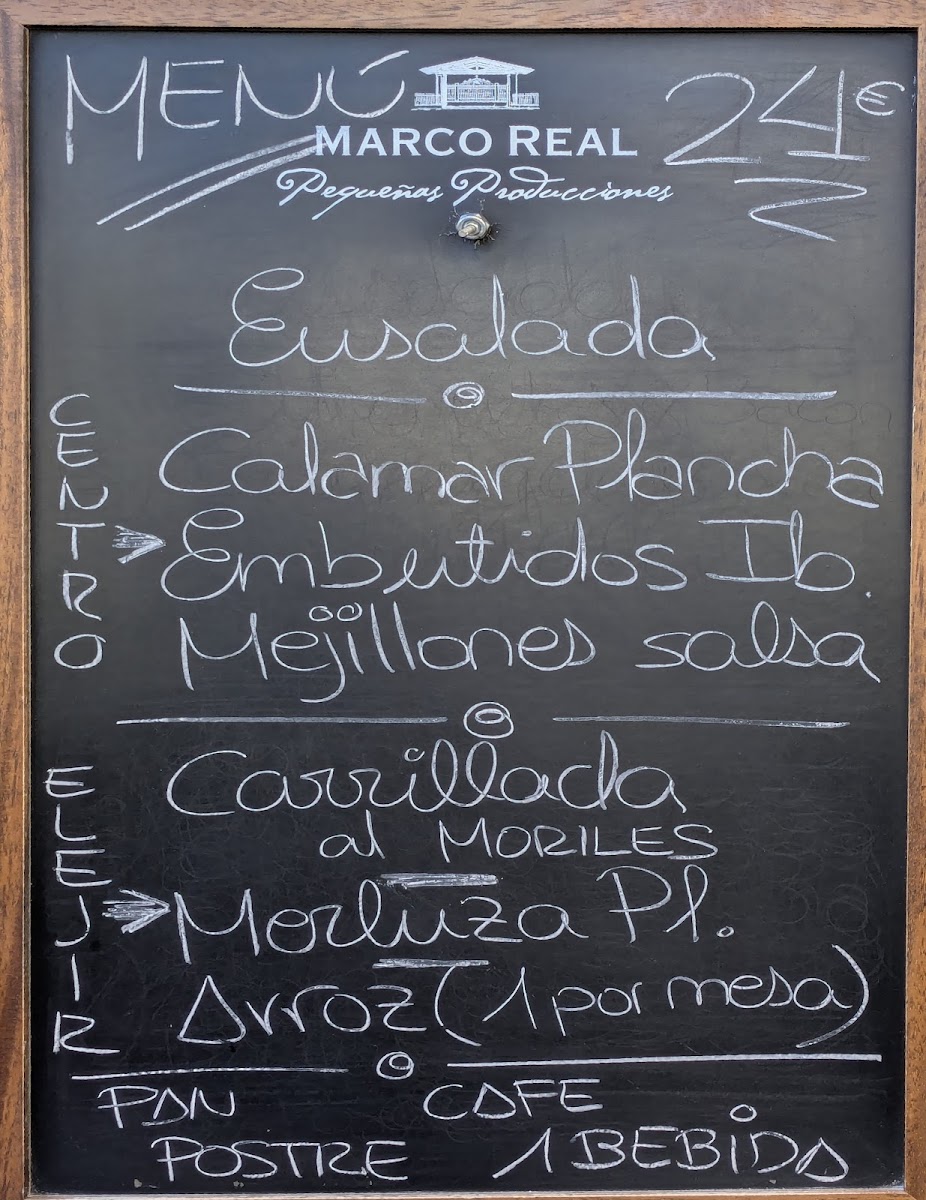 MENÚ
MARCO REAL
24€
Pequeñas Producciones
Ensalada
CENTRO
Calamar Plancha
Embutidos Ib.
Mejillones salsa
ELEJIR
Carrillada
al MORILES
Merluza Pl.
Arroz (1 por mesa)
PAN CAFE
POSTRE 1 BEBIDA